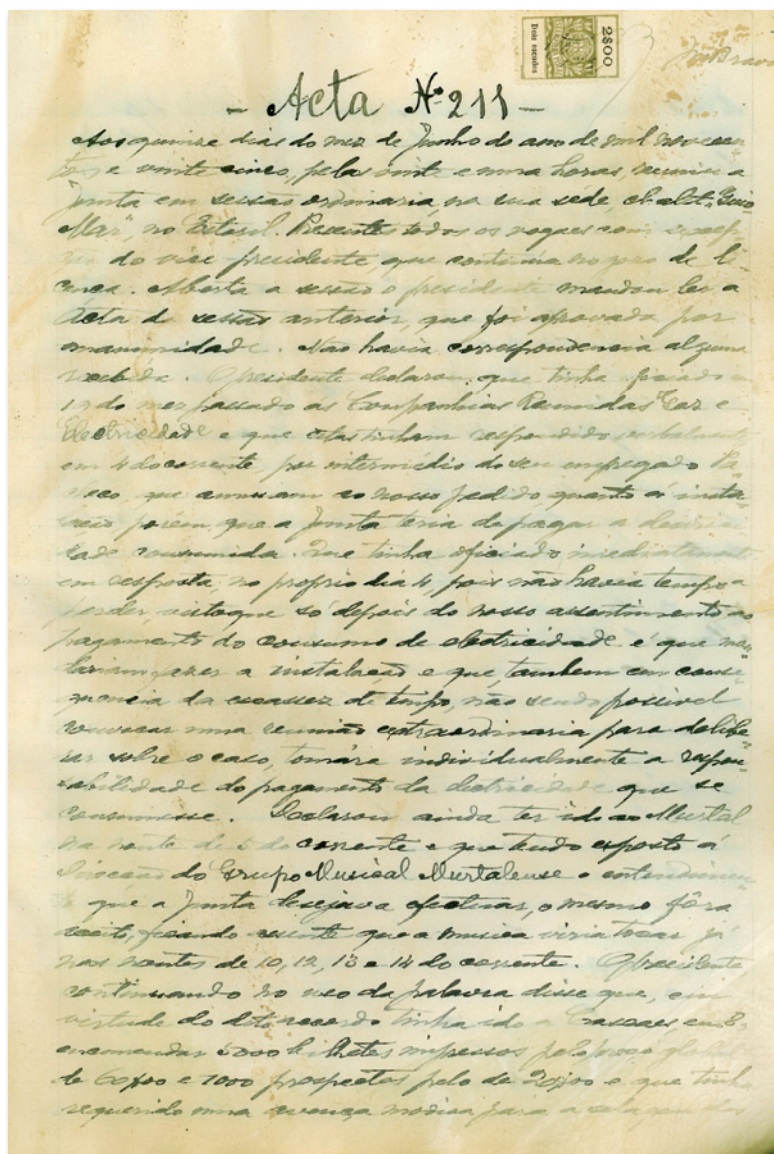 2$00
Dois escudos
- Acta Nº 211 -
Aos quinze dias do mez de Junho do ano de mil novecen-
tos e vinte cinco, pelas vinte e uma horas, reuniu a
Junta em sessão ordinaria, na sua séde, chalet "Guio-
Mar", no Estoril. Presentes todos os vogaes com excep-
ção do vice-presidente, que continua no goso de li-
cença. Aberta a sessão o presidente mandou ler a
Acta da sessão anterior, que foi aprovada por
unanimidade. Não havia correspondencia alguma
recebida. O presidente declarou, que tinha oficiado em
19 do mez passado ás Companhias Reunidas Gaz e
Electricidade e que estas tinham respondido verbalmente
em 4 do corrente, por intermédio do seu empregado
que anuiam ao nosso pedido, quanto á insta-
lação porém, que a Junta teria de pagar a electrici-
dade consumida. Que tinha oficiado imediatamente
em resposta, no proprio dia 4, pois não havia tempo a
perder, visto que só depois do nosso assentimento ao
pagamento do consumo de electricidade é que man-
dariam fazer a instalação e que, tambem em conse-
quencia da escassez de tempo, não sendo possivel
convocar uma reunião extraordinaria para delibe-
rar sobre o caso, tomára individualmente a respon-
sabilidade do pagamento da electricidade que se
consumisse. Declarou ainda ter ido ao Murtal
na noite de 5 do corrente e que tendo exposto á
Direcção do Grupo Musical Murtalense o entendimen-
to que a Junta desejava efectuar, o mesmo fôra
aceito, ficando assente que a musica viria tocar já
nas noites de 10, 12, 13 e 14 do corrente. O presidente
continuando no uso da palavra disse que, em
virtude do dito acordo tinha ido a Cascaes em 8,
encomendar 5000 bilhetes impressos pelo preço global
de 60$00 e 1000 prospectos pelo de 20$00 e que tinha
requerido uma avença modica para a selagem dos